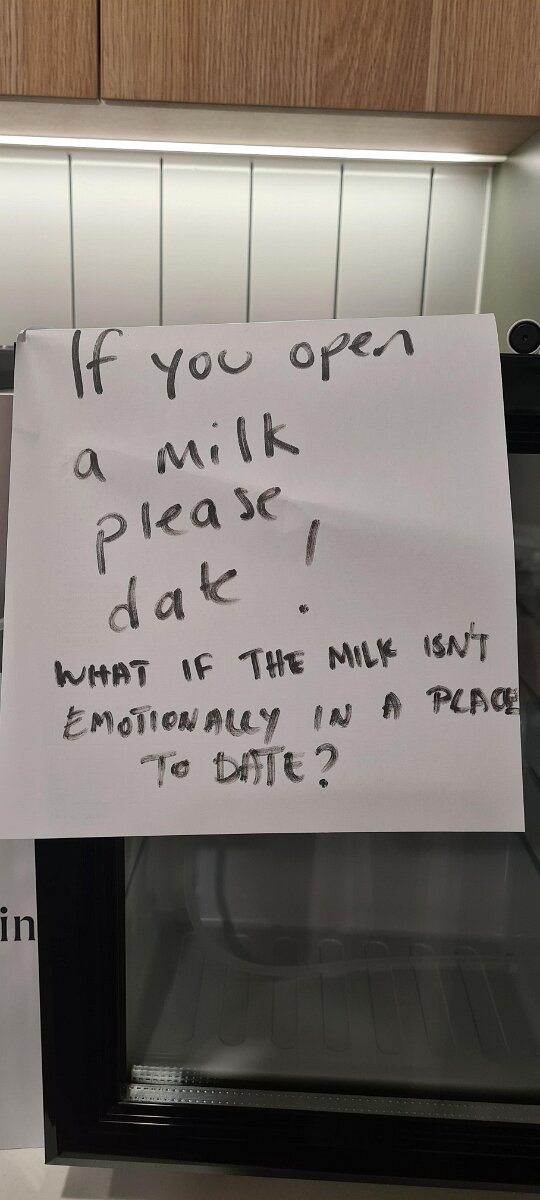 If you open
a milk
please
date !
WHAT IF THE MILK ISN'T
EMOTIONALLY IN A PLACE
TO DATE?
in